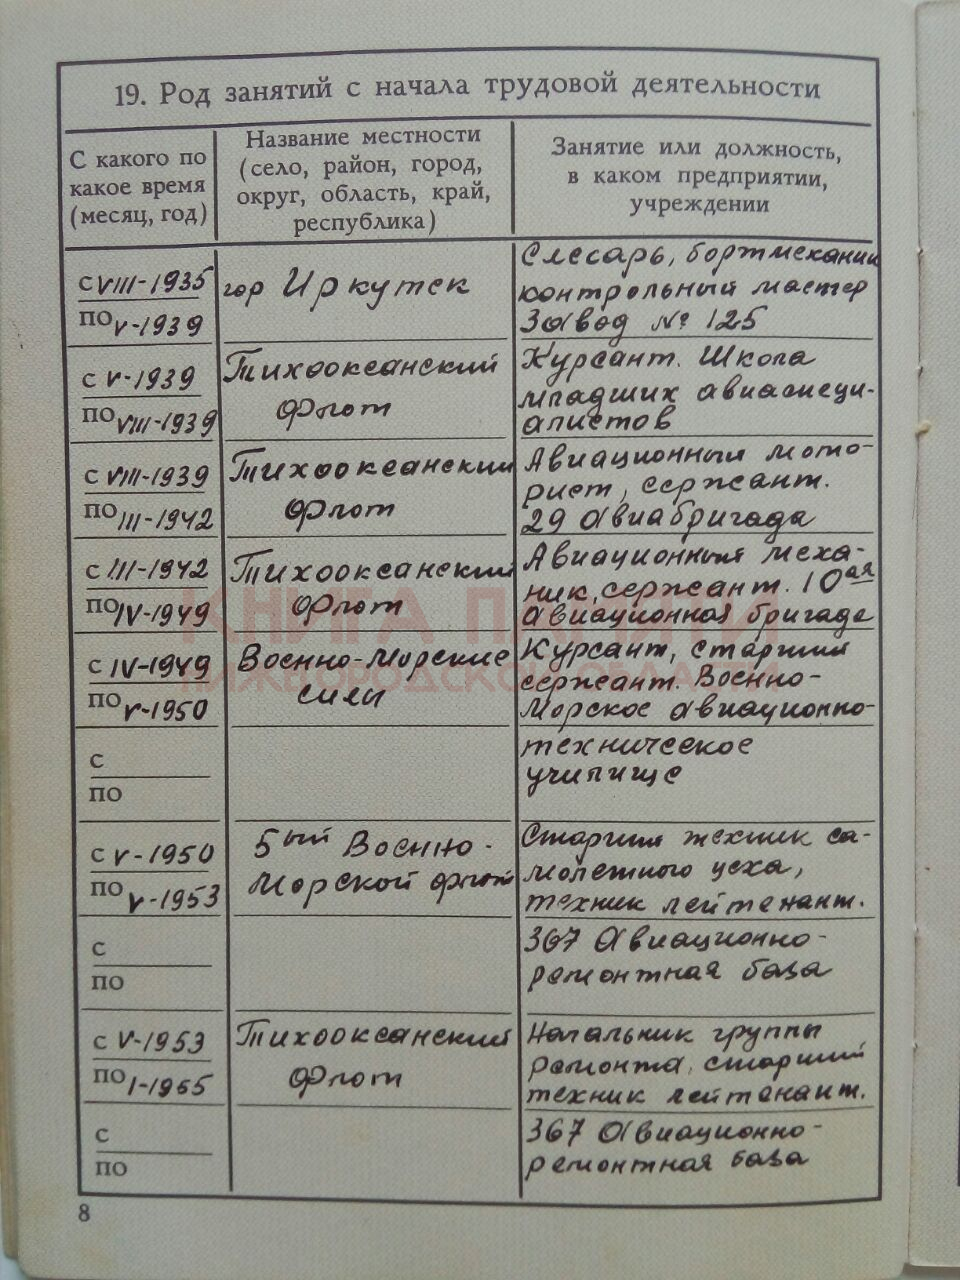 19. Род занятий с начала трудовой деятельности
С какого по
какое время
(месяц, год)
Название местности
(село, район, город,
округ, область, край,
республика)
Занятие или должность,
в каком предприятии,
учреждении
с VIII-1935
по V-1939
гор Иркутск
Слесарь, бортмеханик
контрольный мастер
Завод № 125
с V-1939
по VIII-1939
Тихоокеанский
Флот
Курсант. Школа
младших авиаспеци-
алистов
с VIII-1939
по III-1942
Тихоокеанский
Флот
Авиационный мото-
рист, сержант.
29 Авиабригада
с III-1942
по IV-1949
Тихоокеанский
Флот
Авиационный меха-
ник, сержант. 10ая
Авиационная бригада
с IV-1949
по V-1950
Военно-Морские
силы
Курсант, старший
сержант. Военно-
Морское авиационно-
техническое
училище
с
по
с V-1950
по V-1953
5ый Военно-
Морской флот
Старший техник са-
молетного цеха,
техник лейтенант.
367 Авиационно-
ремонтная база
с
по
с V-1953
по I-1955
Тихоокеанский
Флот
Начальник группы
ремонта, старший
техник лейтенант.
367 Авиационно-
ремонтная база
с
по
8
КНИГА ПАМЯТИ
НИЖЕГОРОДСКОЙ ОБЛАСТИ